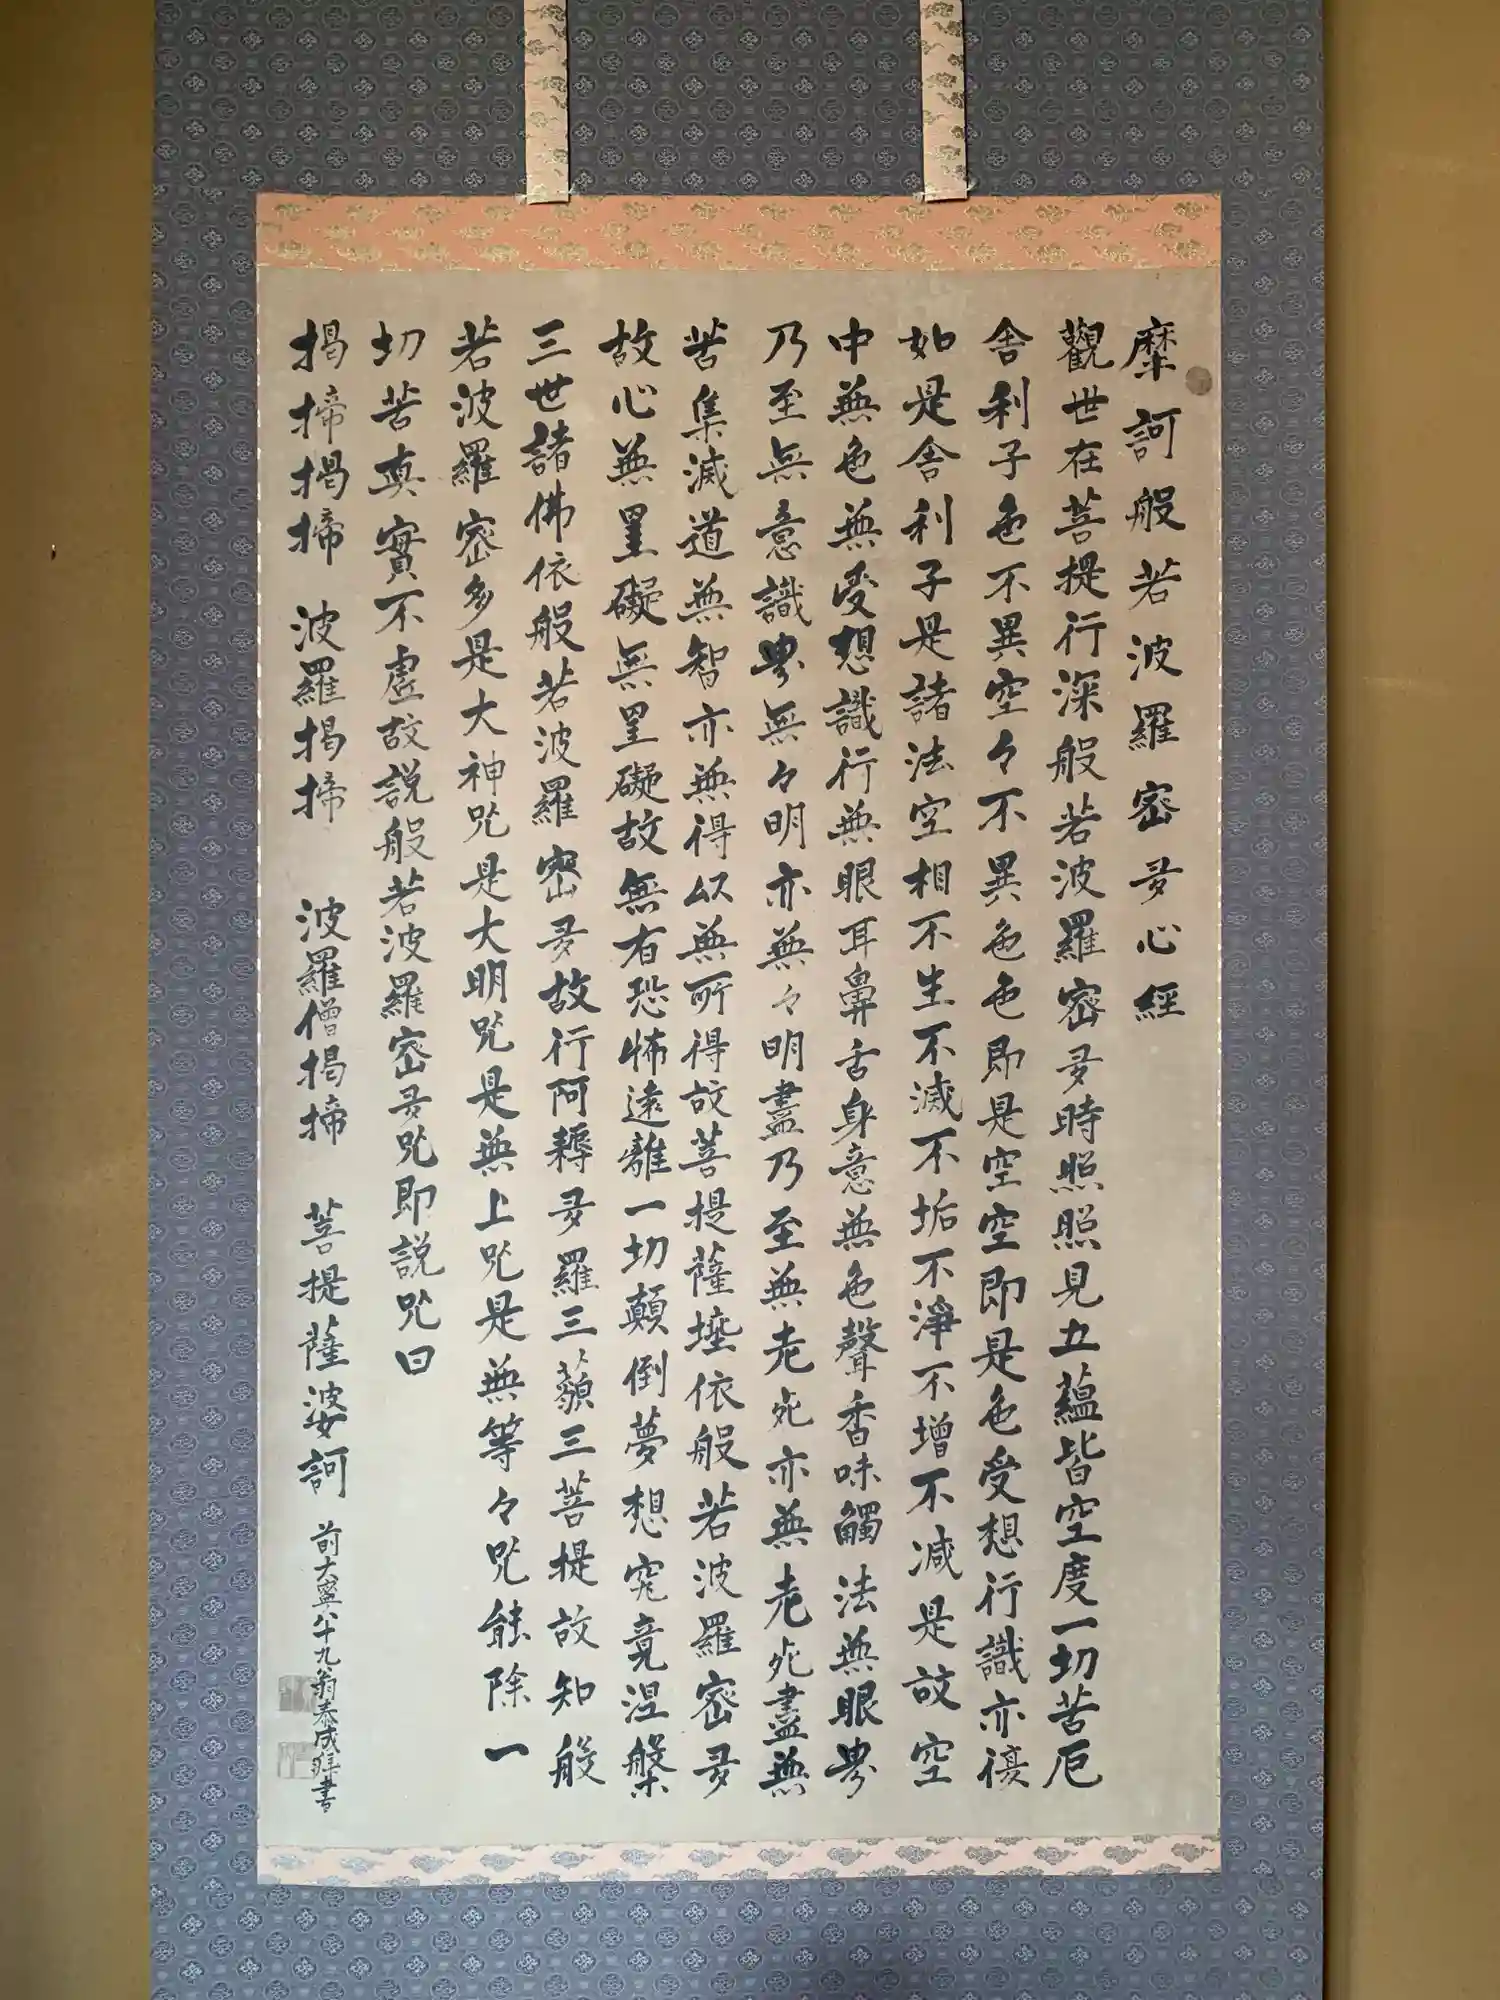 摩訶般若波羅密多心經
觀世在菩提行深般若波羅密多時照照見五蘊皆空度一切苦厄
舍利子色不異空々不異色色即是空空即是色受想行識亦復
如是舍利子是諸法空相不生不滅不垢不淨不增不减是故空
中無色無受想識行無眼耳鼻舌身意無色聲香味觸法無眼界
乃至無意識界無々明亦無々明盡乃至無老死亦無老死盡無
苦集滅道無智亦無得以無所得故菩提薩埵依般若波羅密多
故心無罣礙無罣礙故無有恐怖遠離一切顛倒夢想究竟涅槃
三世諸佛依般若波羅密多故行阿耨多羅三藐三菩提故知般
若波羅密多是大神咒是大明咒是無上咒是無等々咒能除一
切苦真實不虛故説般若波羅密多咒即説咒曰
揭揥揭揥 波羅揭揥 波羅僧揭揥 菩提薩婆訶
前大寧八十九翁泰成拜書